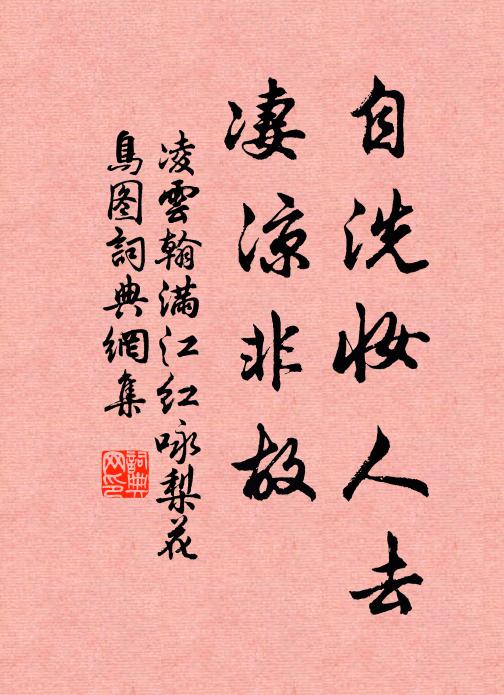 自洗妆人去
凄涼非故
凌雲翰满江红咏梨花
鳥图詞典網集
詞典
网印